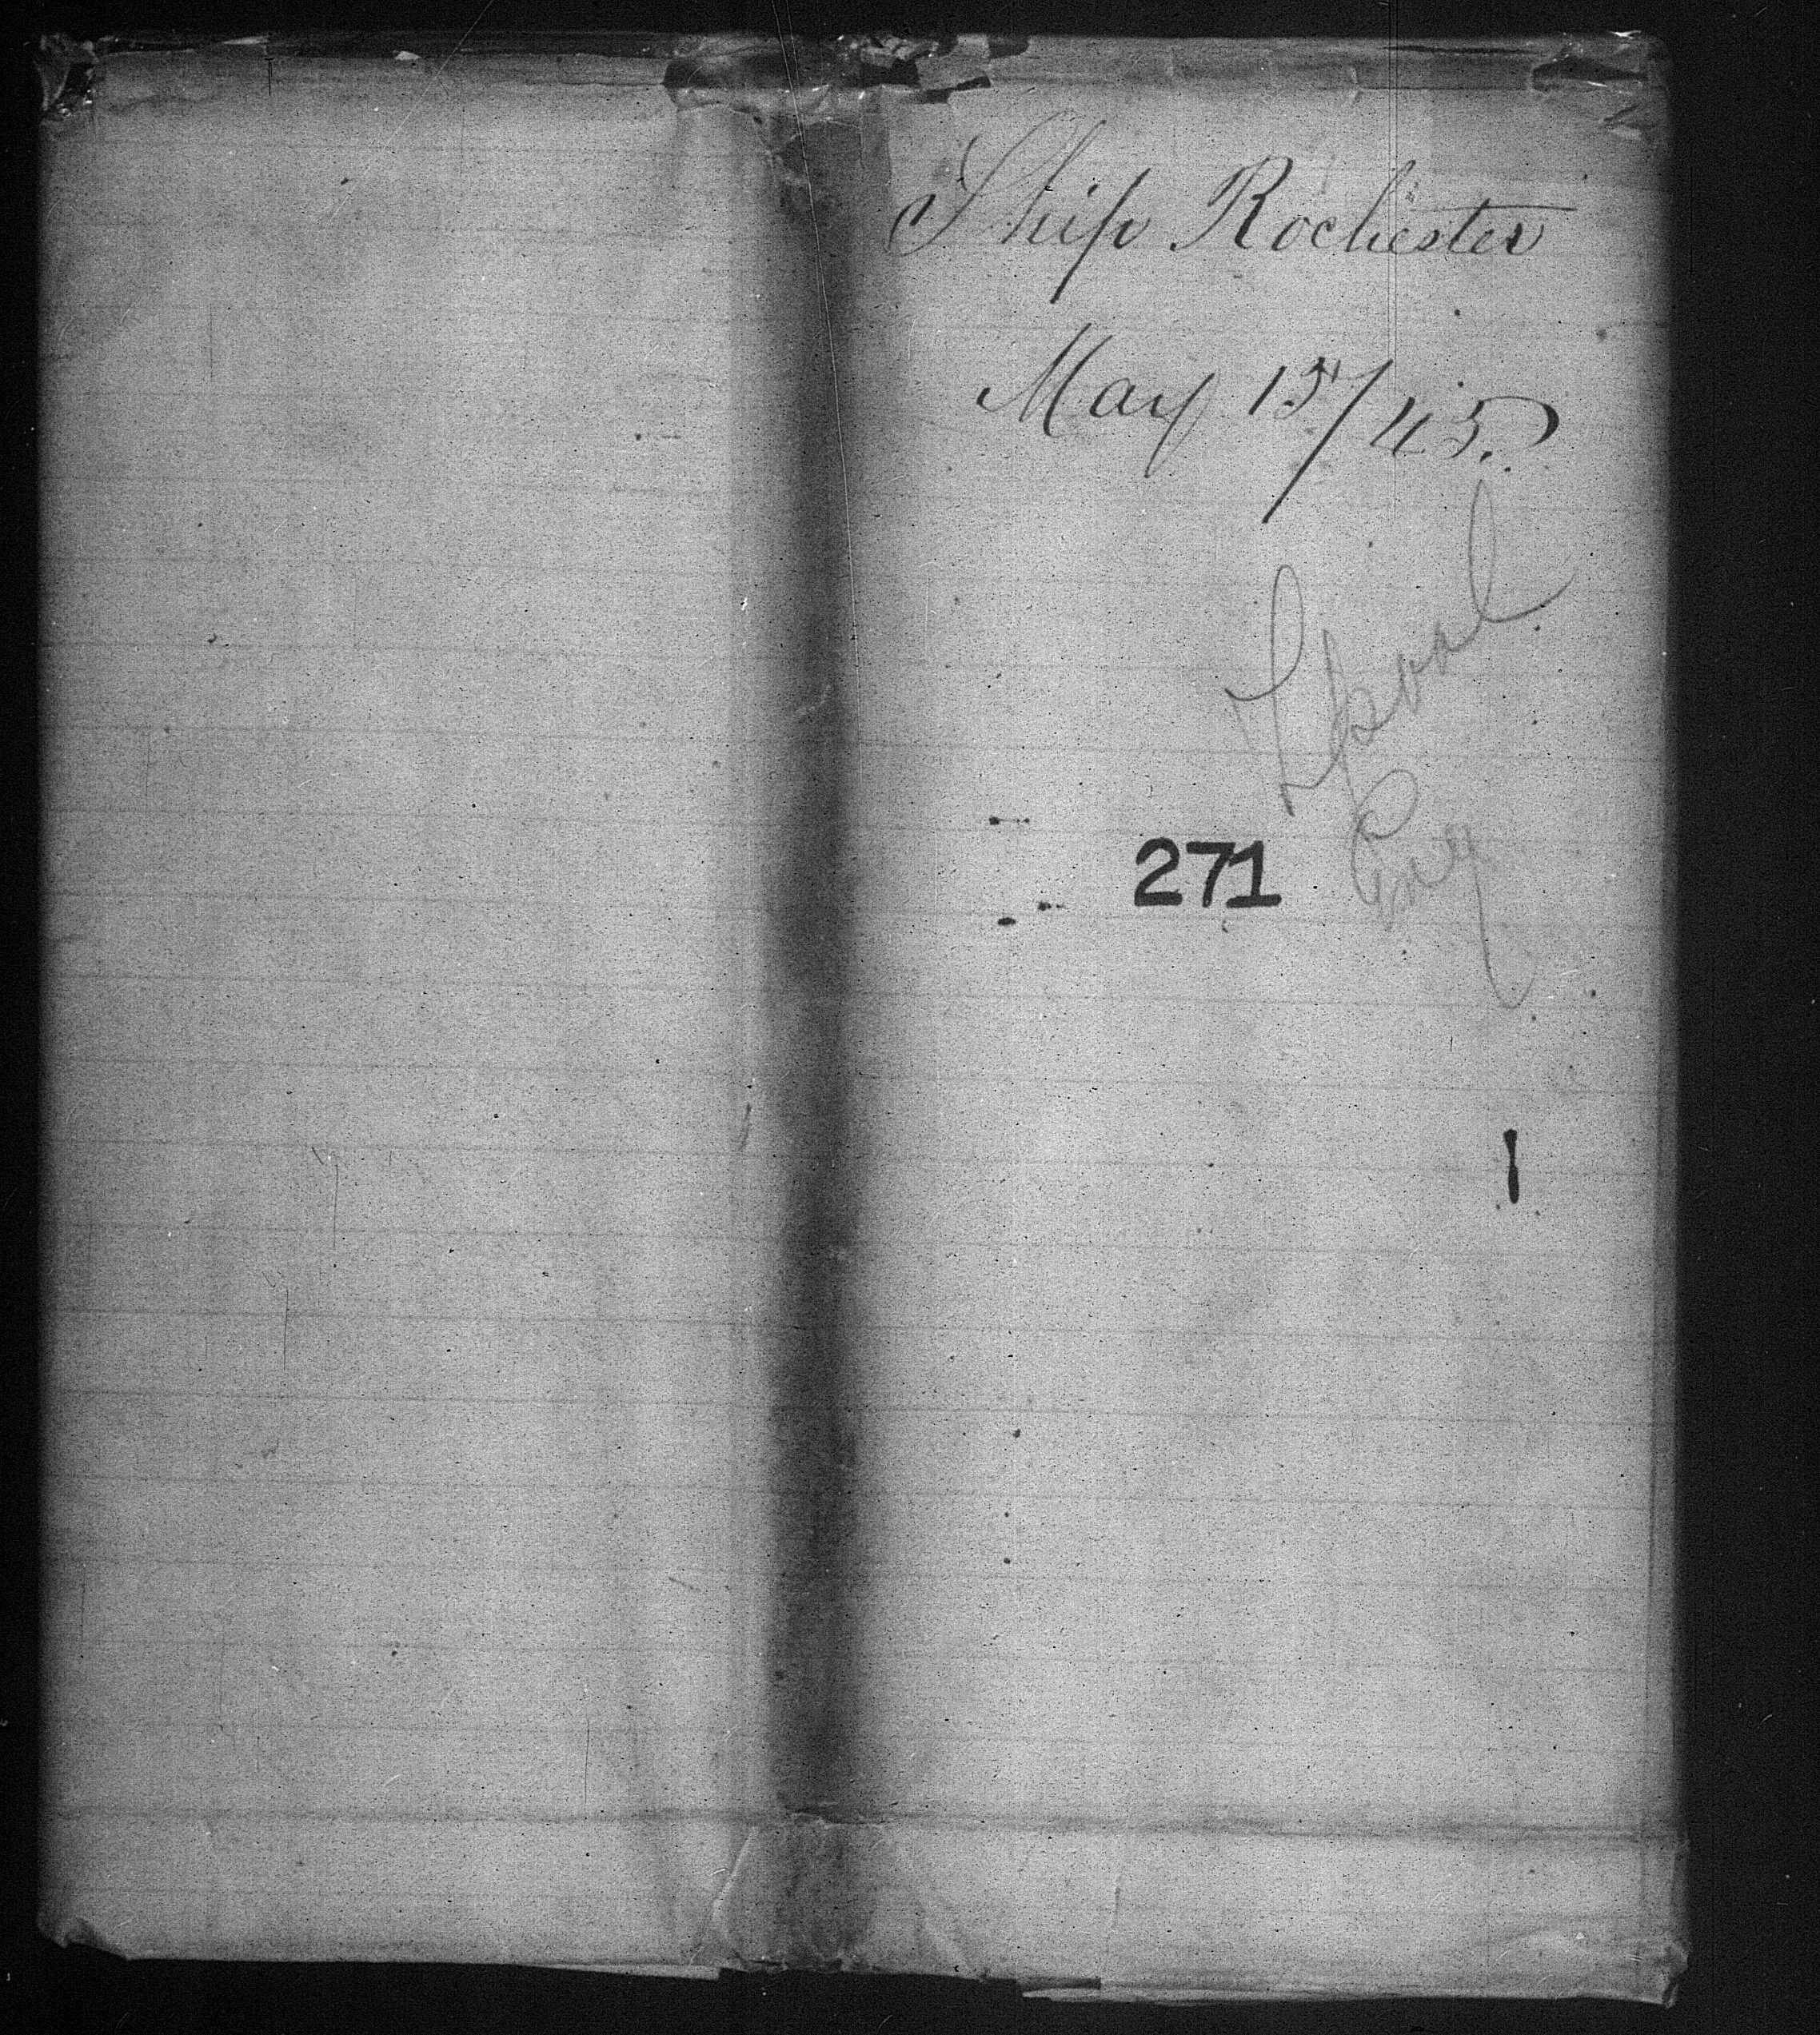 Ship Rochester
May 15/45.
Lpool
Eng
271
1